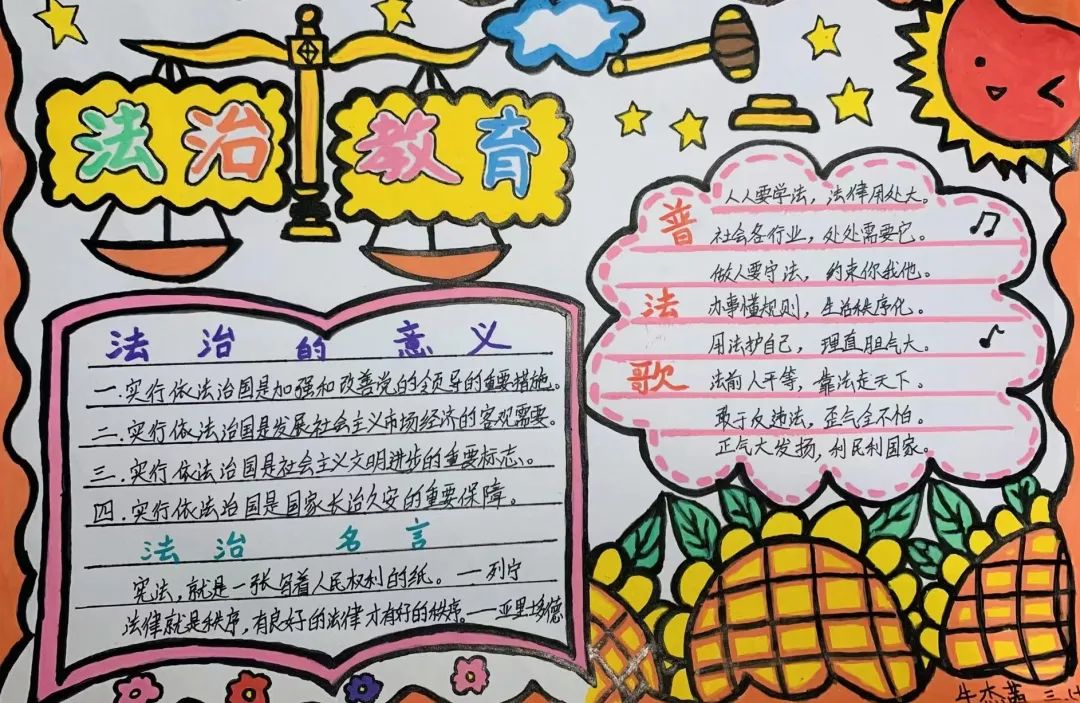 法治教育
法治的意义
一.实行依法治国是加强和改善党的领导的重要措施。
二.实行依法治国是发展社会主义市场经济的客观需要。
三.实行依法治国是社会主义文明进步的重要标志。
四.实行依法治国是国家长治久安的重要保障。
法治 名言
宪法，就是一张写着人民权利的纸。—列宁
法律就是秩序，有良好的法律才有好的秩序。—亚里多德
普法歌
人人要学法，法律用处大。
社会各行业，处处需要它。
做人要守法，约束你我他。
办事懂规则，生活秩序化。
用法护自己，理直胆气大。
法前人平等，靠法走天下。
敢于反违法，歪气全不怕。
正气大发扬，利民利国家。
牛杰茜 三.